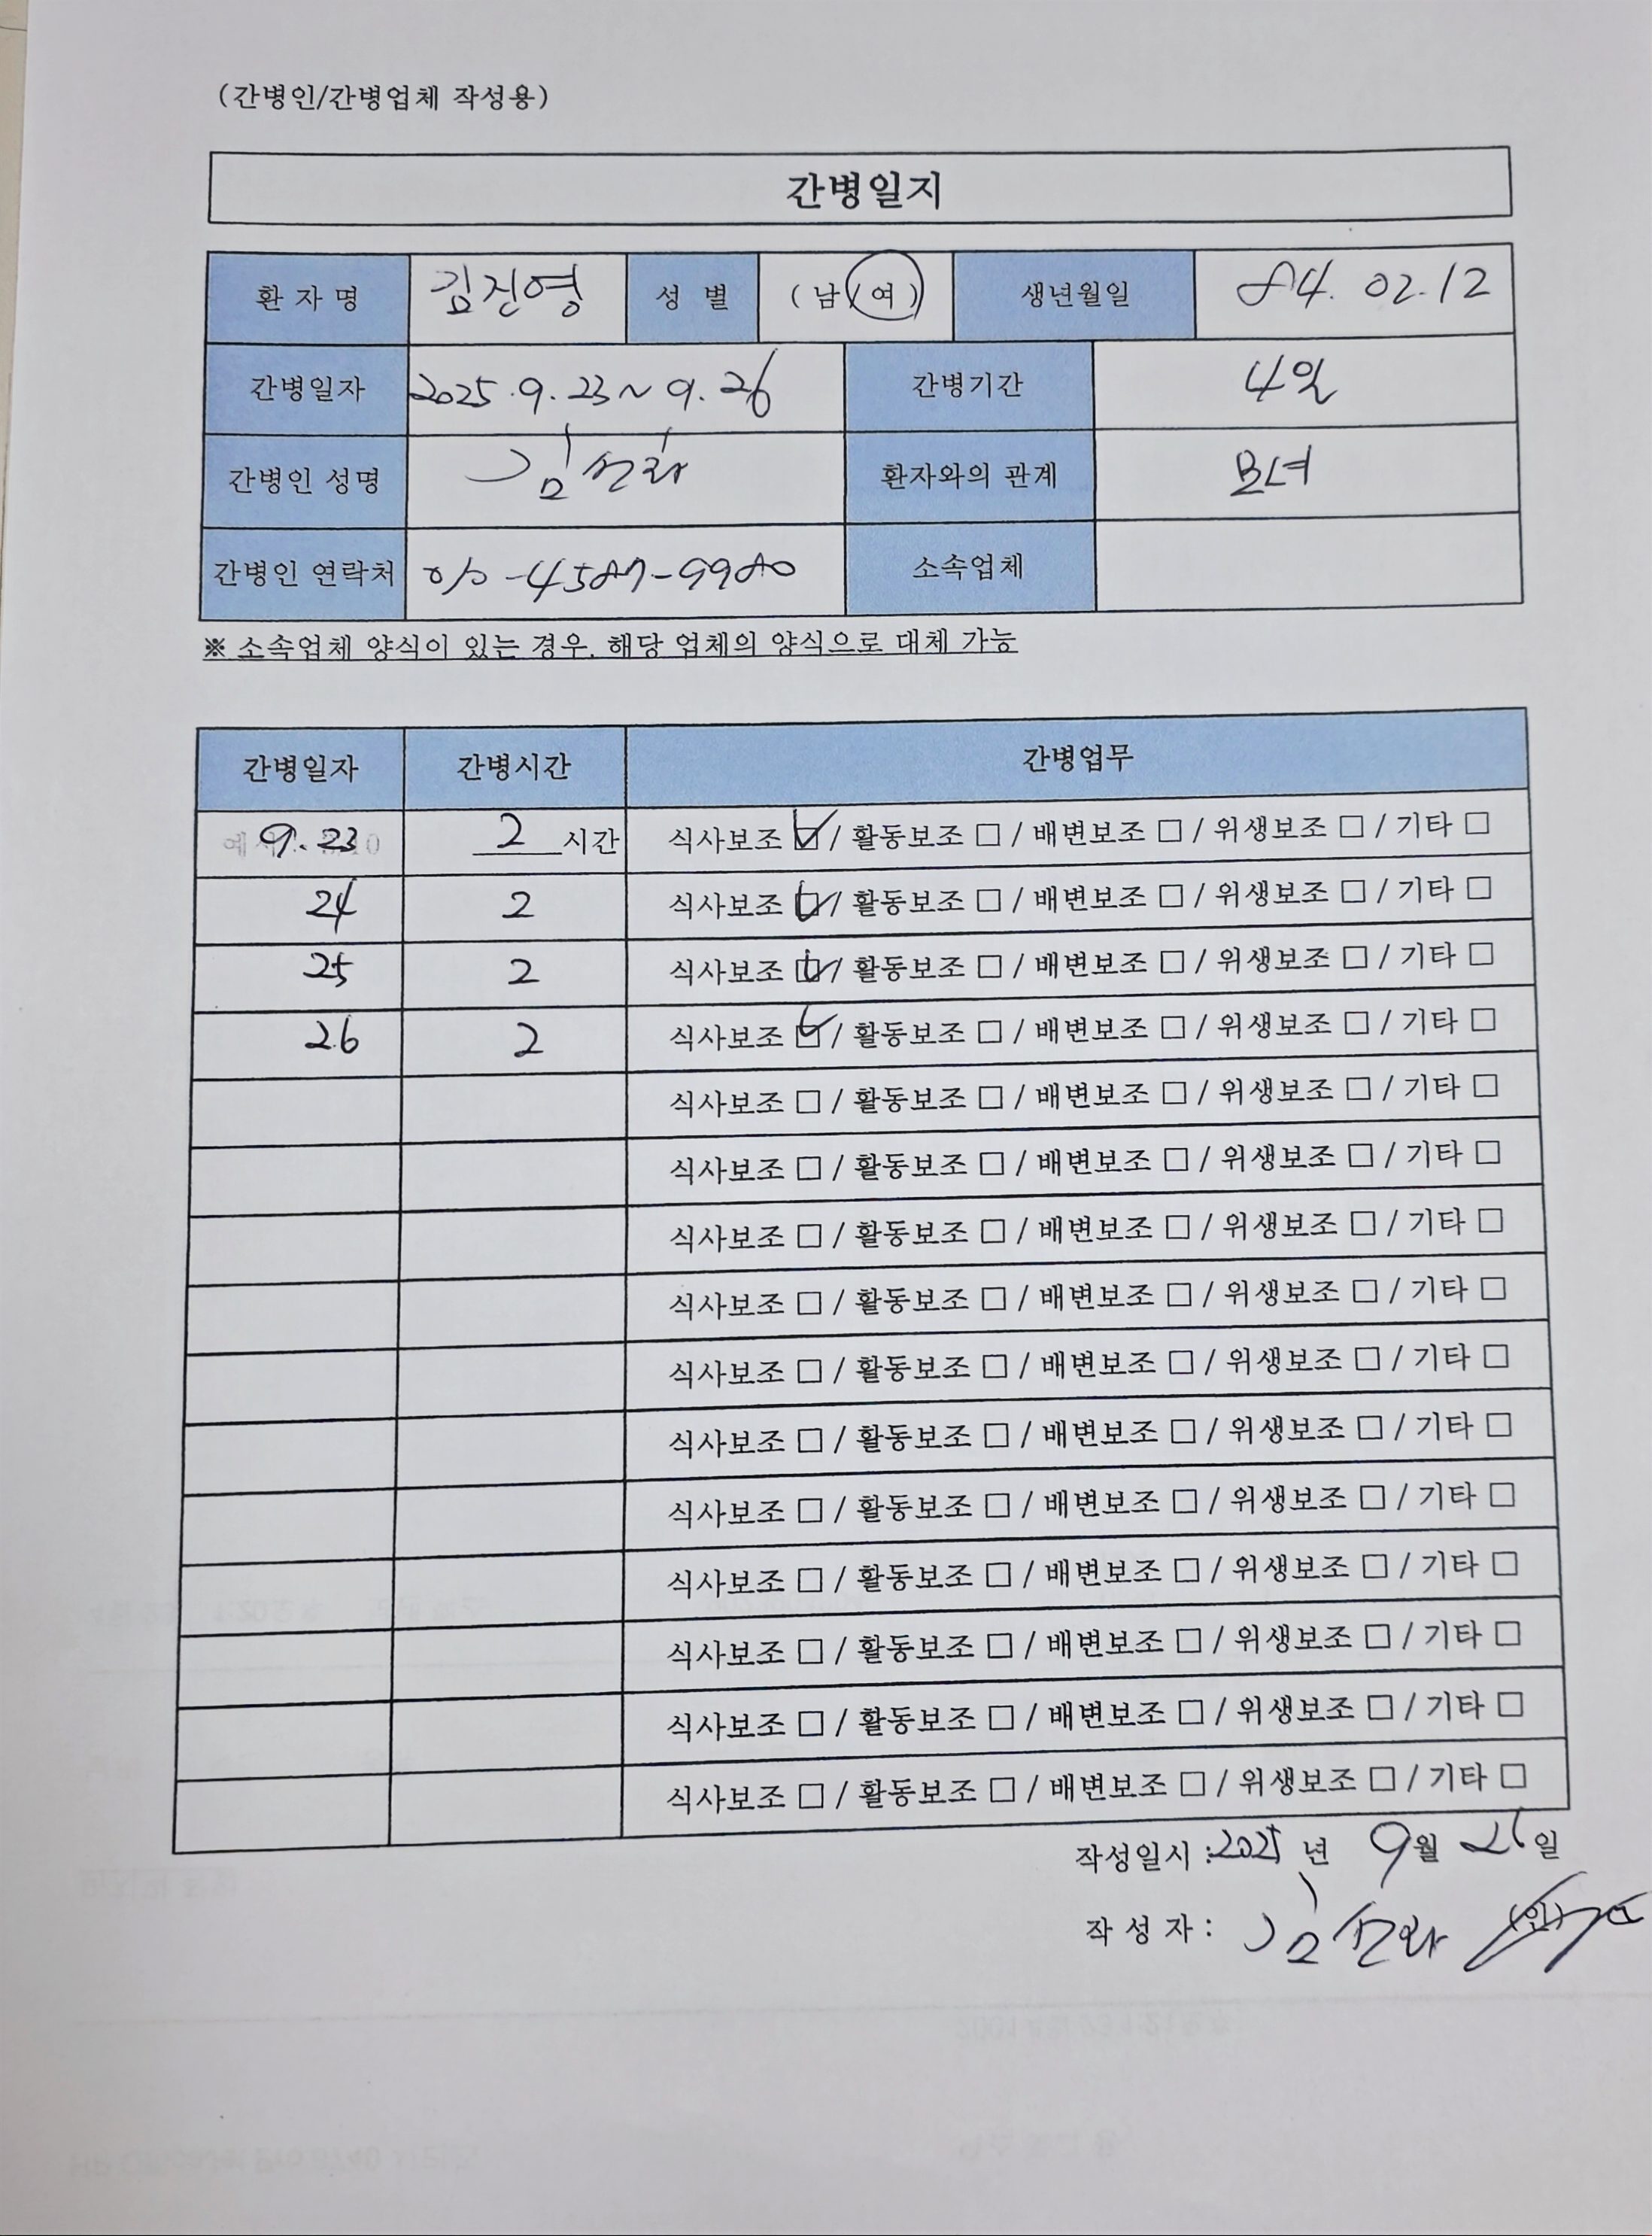 (간병인/간병업체 작성용)
간병일지
환 자 명 김진영 성 별 ( 남 / 여 ) 생년월일 84. 02. 12
간병일자 2025. 9. 23 ~ 9. 26 간병기간 4일
간병인 성명 김선화 환자와의 관계 모녀
간병인 연락처 010-4587-9980 소속업체
※ 소속업체 양식이 있는 경우, 해당 업체의 양식으로 대체 가능
간병일자 간병시간 간병업무
9. 23 2 시간 식사보조 ☑ / 활동보조 □ / 배변보조 □ / 위생보조 □ / 기타 □
24 2 식사보조 ☑ / 활동보조 □ / 배변보조 □ / 위생보조 □ / 기타 □
25 2 식사보조 ☑ / 활동보조 □ / 배변보조 □ / 위생보조 □ / 기타 □
26 2 식사보조 ☑ / 활동보조 □ / 배변보조 □ / 위생보조 □ / 기타 □
식사보조 □ / 활동보조 □ / 배변보조 □ / 위생보조 □ / 기타 □
식사보조 □ / 활동보조 □ / 배변보조 □ / 위생보조 □ / 기타 □
식사보조 □ / 활동보조 □ / 배변보조 □ / 위생보조 □ / 기타 □
식사보조 □ / 활동보조 □ / 배변보조 □ / 위생보조 □ / 기타 □
식사보조 □ / 활동보조 □ / 배변보조 □ / 위생보조 □ / 기타 □
식사보조 □ / 활동보조 □ / 배변보조 □ / 위생보조 □ / 기타 □
식사보조 □ / 활동보조 □ / 배변보조 □ / 위생보조 □ / 기타 □
식사보조 □ / 활동보조 □ / 배변보조 □ / 위생보조 □ / 기타 □
식사보조 □ / 활동보조 □ / 배변보조 □ / 위생보조 □ / 기타 □
식사보조 □ / 활동보조 □ / 배변보조 □ / 위생보조 □ / 기타 □
식사보조 □ / 활동보조 □ / 배변보조 □ / 위생보조 □ / 기타 □
작성일시 : 2025 년 9월 26일
작 성 자 : 김선화 (인)